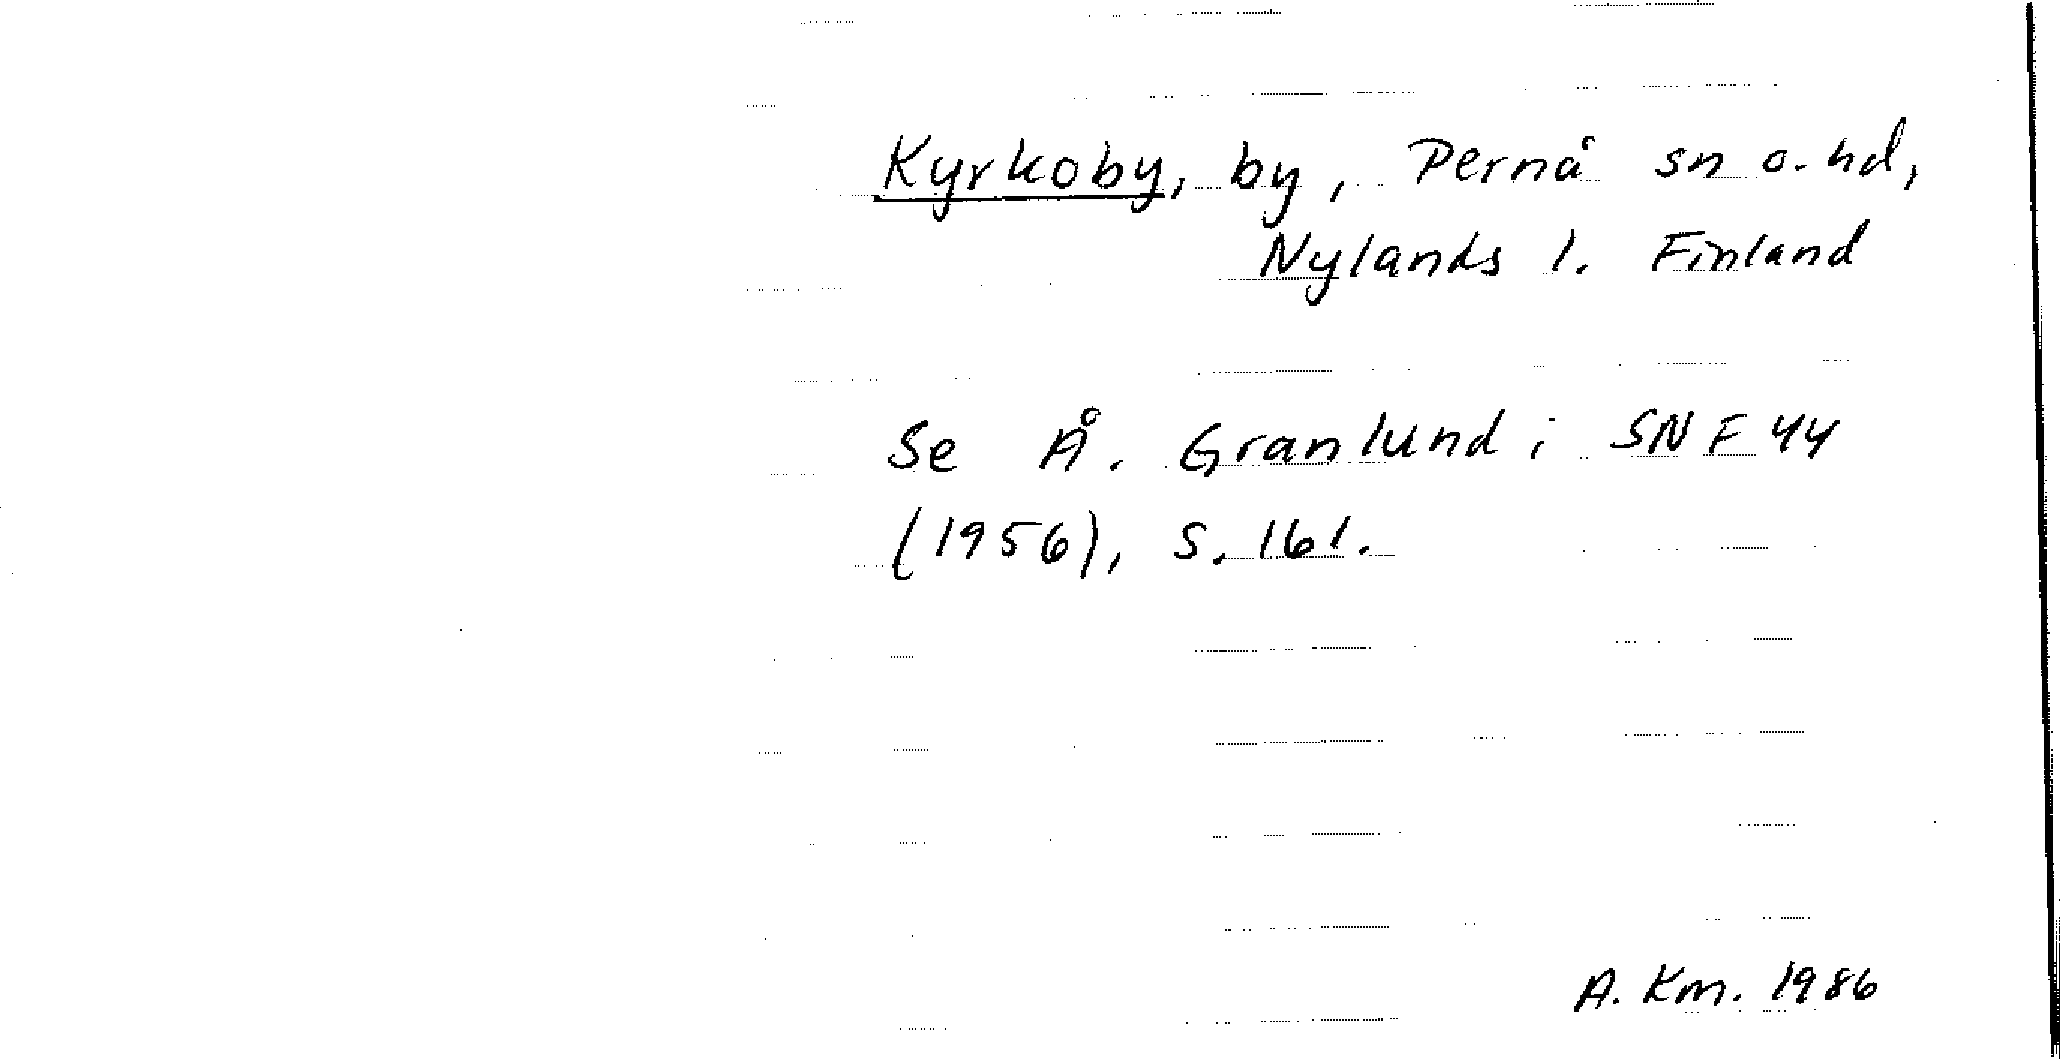 Kyrkoby, by, Pernå sn o. hd,
Nylands l. Finland
Se Å. Granlund i SNF 44
(1956), s. 161.
A. Km. 1986